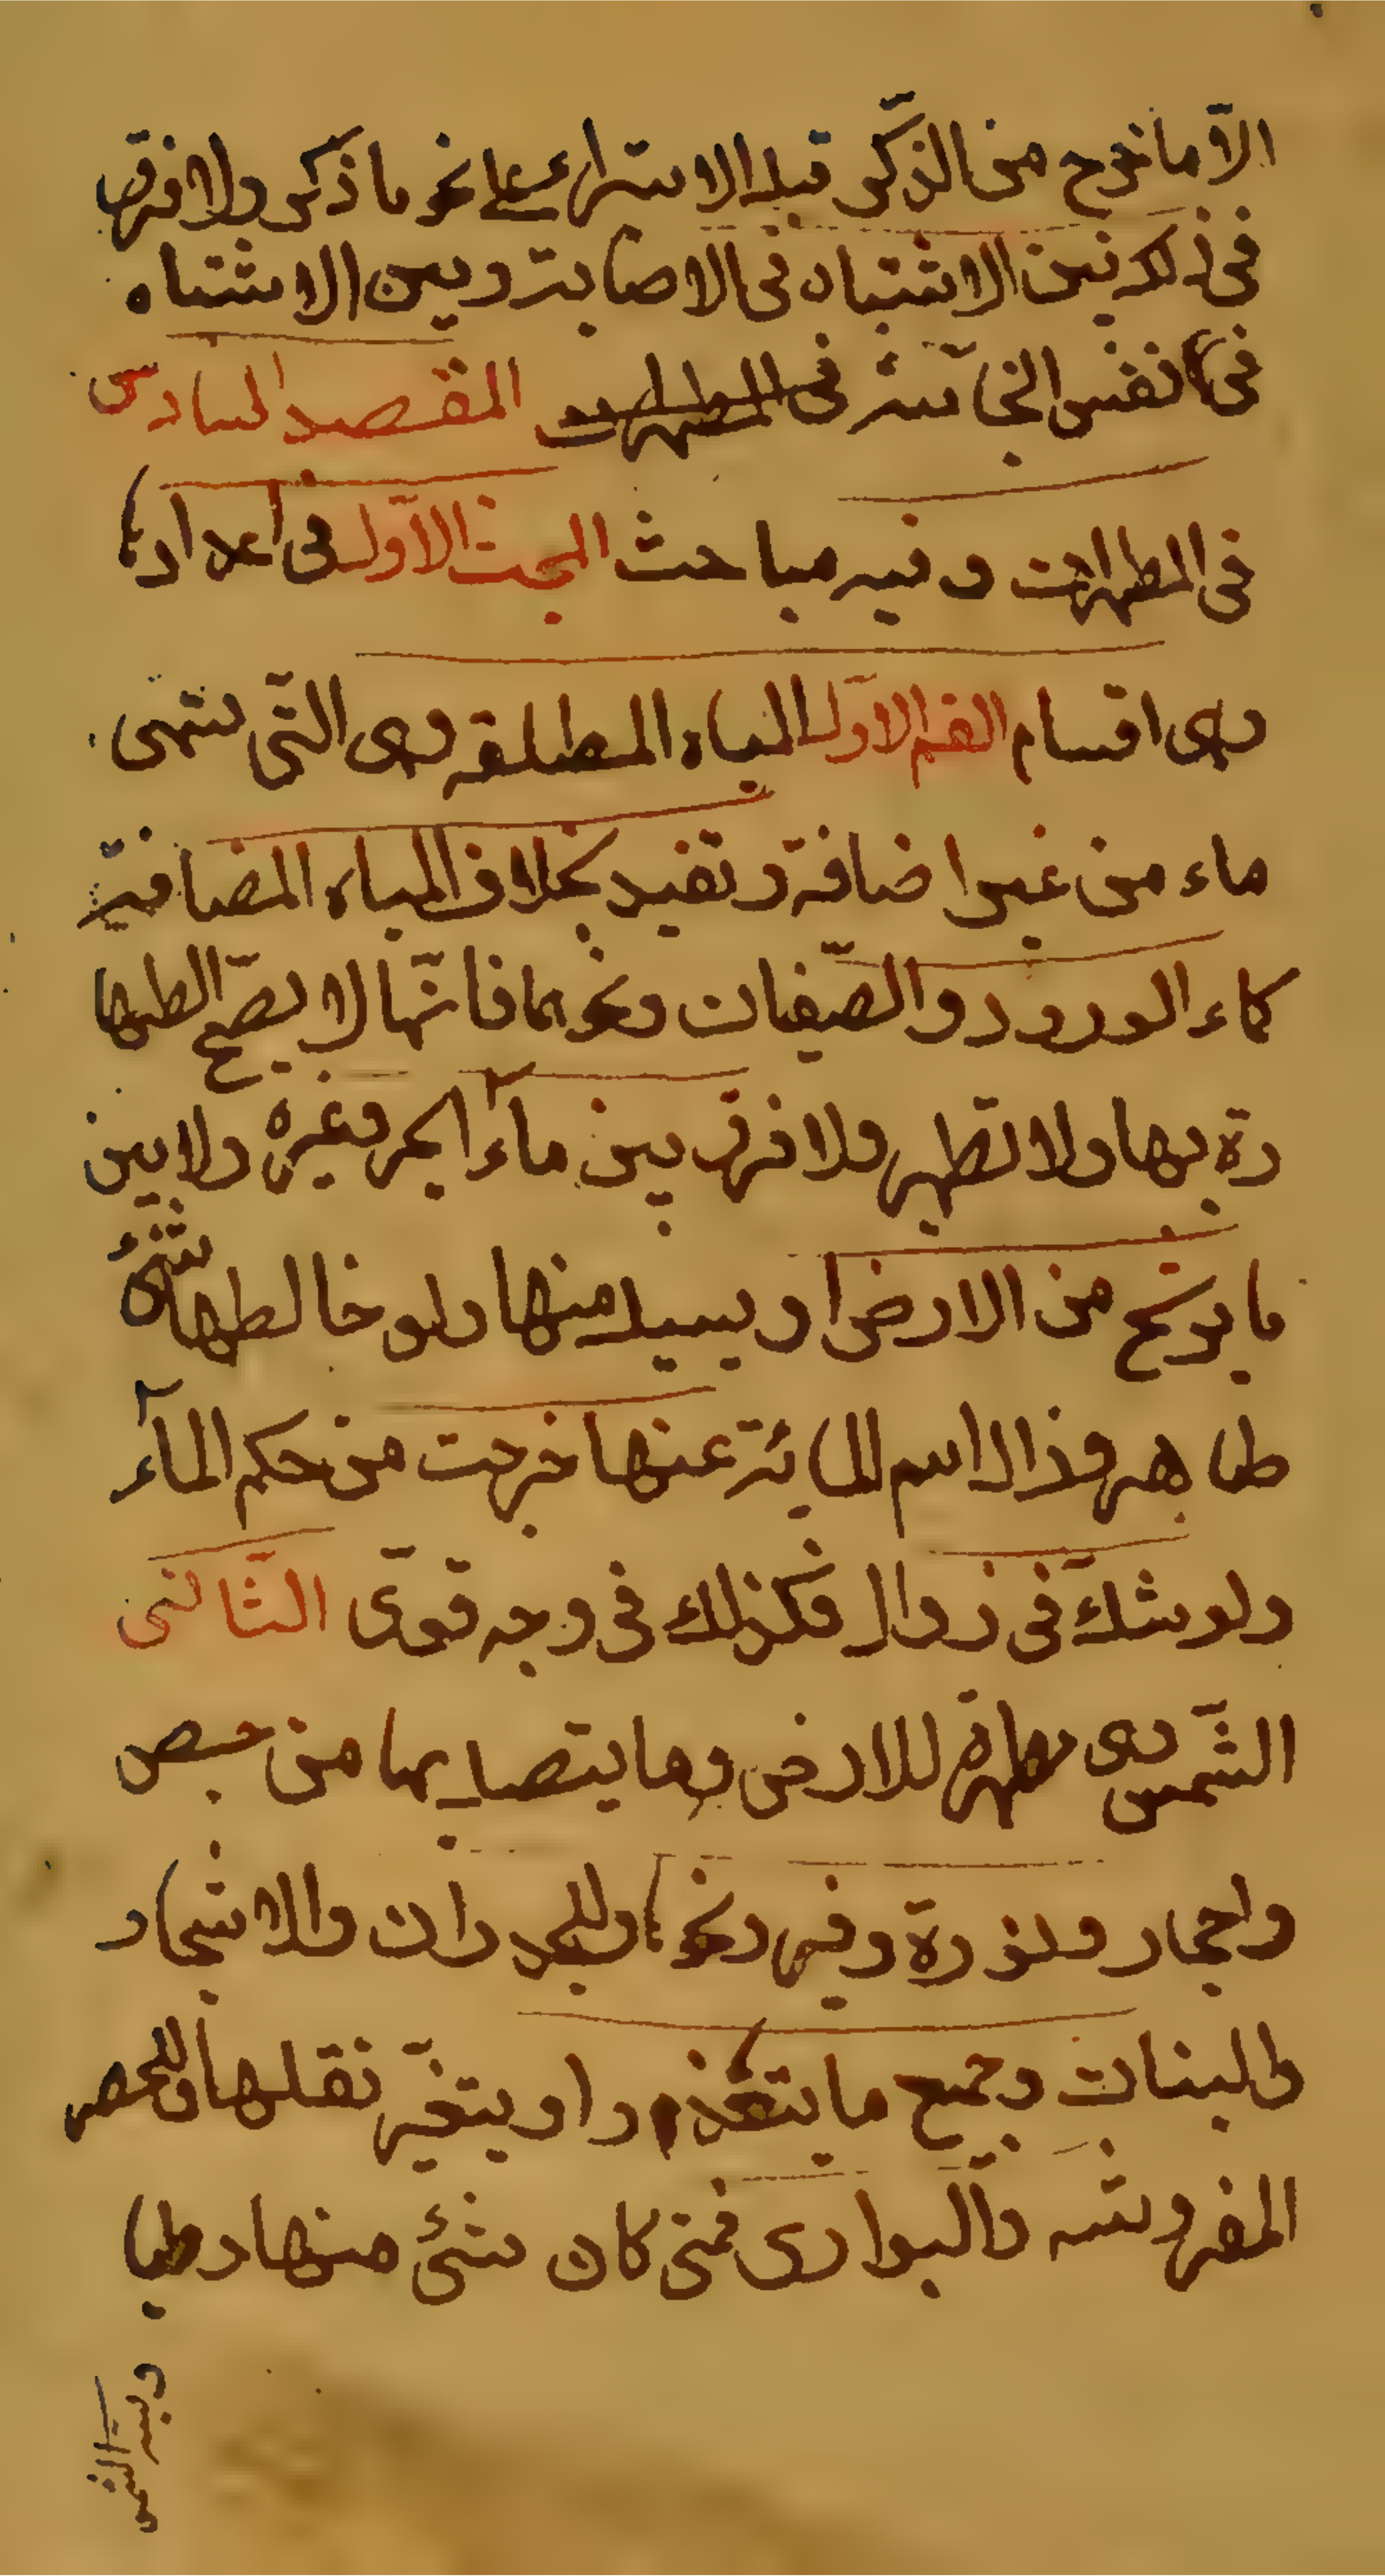 الّا ما خرج من الذّكر قبل الاستبراء على نحو ما ذكر ولا فرق
فى ذلك بين الاشتباه فى الاصابة وبين الاشتباه
فى نفس النجاسة فى المطهرات المقصد السادس
فى المطهرات وفيه مباحث المبحث الاوّل فى اعدادها
وهى اقسام القسم الاوّل المياه المطلقه وهى التّى تسمى
ماء من غير اضافة وتقيد بخلاف المياه المضافية
كماء الورود والصيّفات ونحوهما فانّها لا يصحّ الطها
رة بها ولا تطّهر ولا فرق بين ماء البحر وغيره ولا بين
ما يرشح من الارض او يسيل منها ولو خالطها شئ
طاهر وزال اسم المايئة عنها خرجت من حكم الماء
ولو شكّ فى زوال فكذلك فى وجه قوىّ الثّانى
الشّمس وهى مطهرة للارض وما يتصل بها من حبص
واحجار ونورة وقير ونحوها وللجدران والاشجار
والبنات وجميع ما يتعذر او يتغيّر نقلها وللحصر
المفروشه والبوارى فمتى كان شئ منها رطبا
ويبسته الشمس